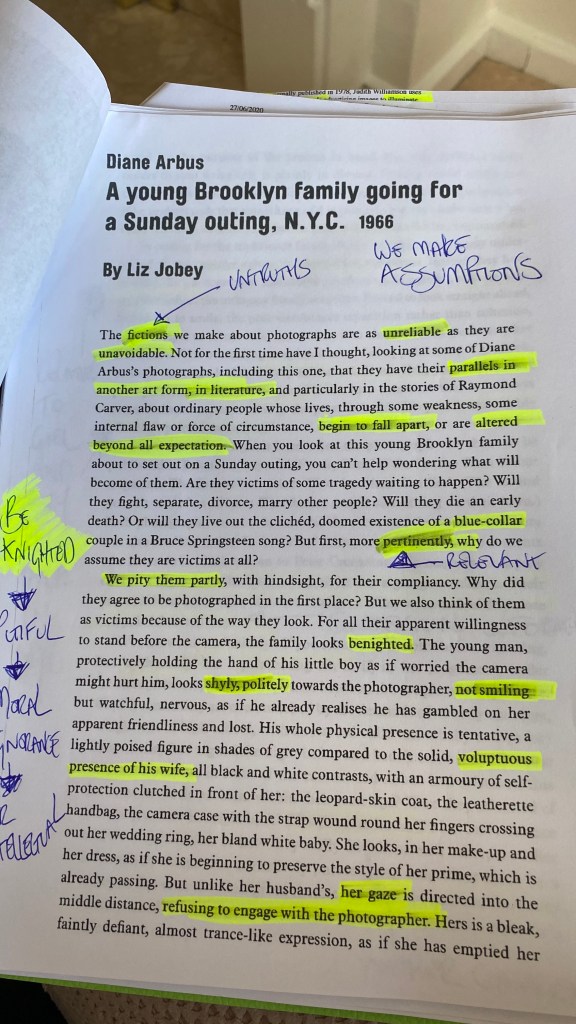 ally published in 1978, Judith Williamson uses
27/06/2020
Diane Arbus
A young Brooklyn family going for
a Sunday outing, N.Y.C. 1966
WE MAKE
ASSUMPTIONS
By Liz Jobey
UNTRUTHS
The fictions we make about photographs are as unreliable as they are
unavoidable. Not for the first time have I thought, looking at some of Diane
Arbus's photographs, including this one, that they have their parallels in
another art form, in literature, and particularly in the stories of Raymond
Carver, about ordinary people whose lives, through some weakness, some
internal flaw or force of circumstance, begin to fall apart, or are altered
beyond all expectation. When you look at this young Brooklyn family
about to set out on a Sunday outing, you can't help wondering what will
become of them. Are they victims of some tragedy waiting to happen? Will
they fight, separate, divorce, marry other people? Will they die an early
death? Or will they live out the clichéd, doomed existence of a blue-collar
couple in a Bruce Springsteen song? But first, more pertinently, why do we
assume they are victims at all?
RELEVANT
BE
KNIGHTED
We pity them partly, with hindsight, for their compliancy. Why did
they agree to be photographed in the first place? But we also think of them
as victims because of the way they look. For all their apparent willingness
to stand before the camera, the family looks benighted. The young man,
protectively holding the hand of his little boy as if worried the camera
might hurt him, looks shyly, politely towards the photographer, not smiling
but watchful, nervous, as if he already realises he has gambled on her
apparent friendliness and lost. His whole physical presence is tentative, a
lightly poised figure in shades of grey compared to the solid, voluptuous
presence of his wife, all black and white contrasts, with an armoury of self-
protection clutched in front of her: the leopard-skin coat, the leatherette
handbag, the camera case with the strap wound round her fingers crossing
out her wedding ring, her bland white baby. She looks, in her make-up and
her dress, as if she is beginning to preserve the style of her prime, which is
already passing. But unlike her husband's, her gaze is directed into the
middle distance, refusing to engage with the photographer. Hers is a bleak,
faintly defiant, almost trance-like expression, as if she has emptied her
MORAL